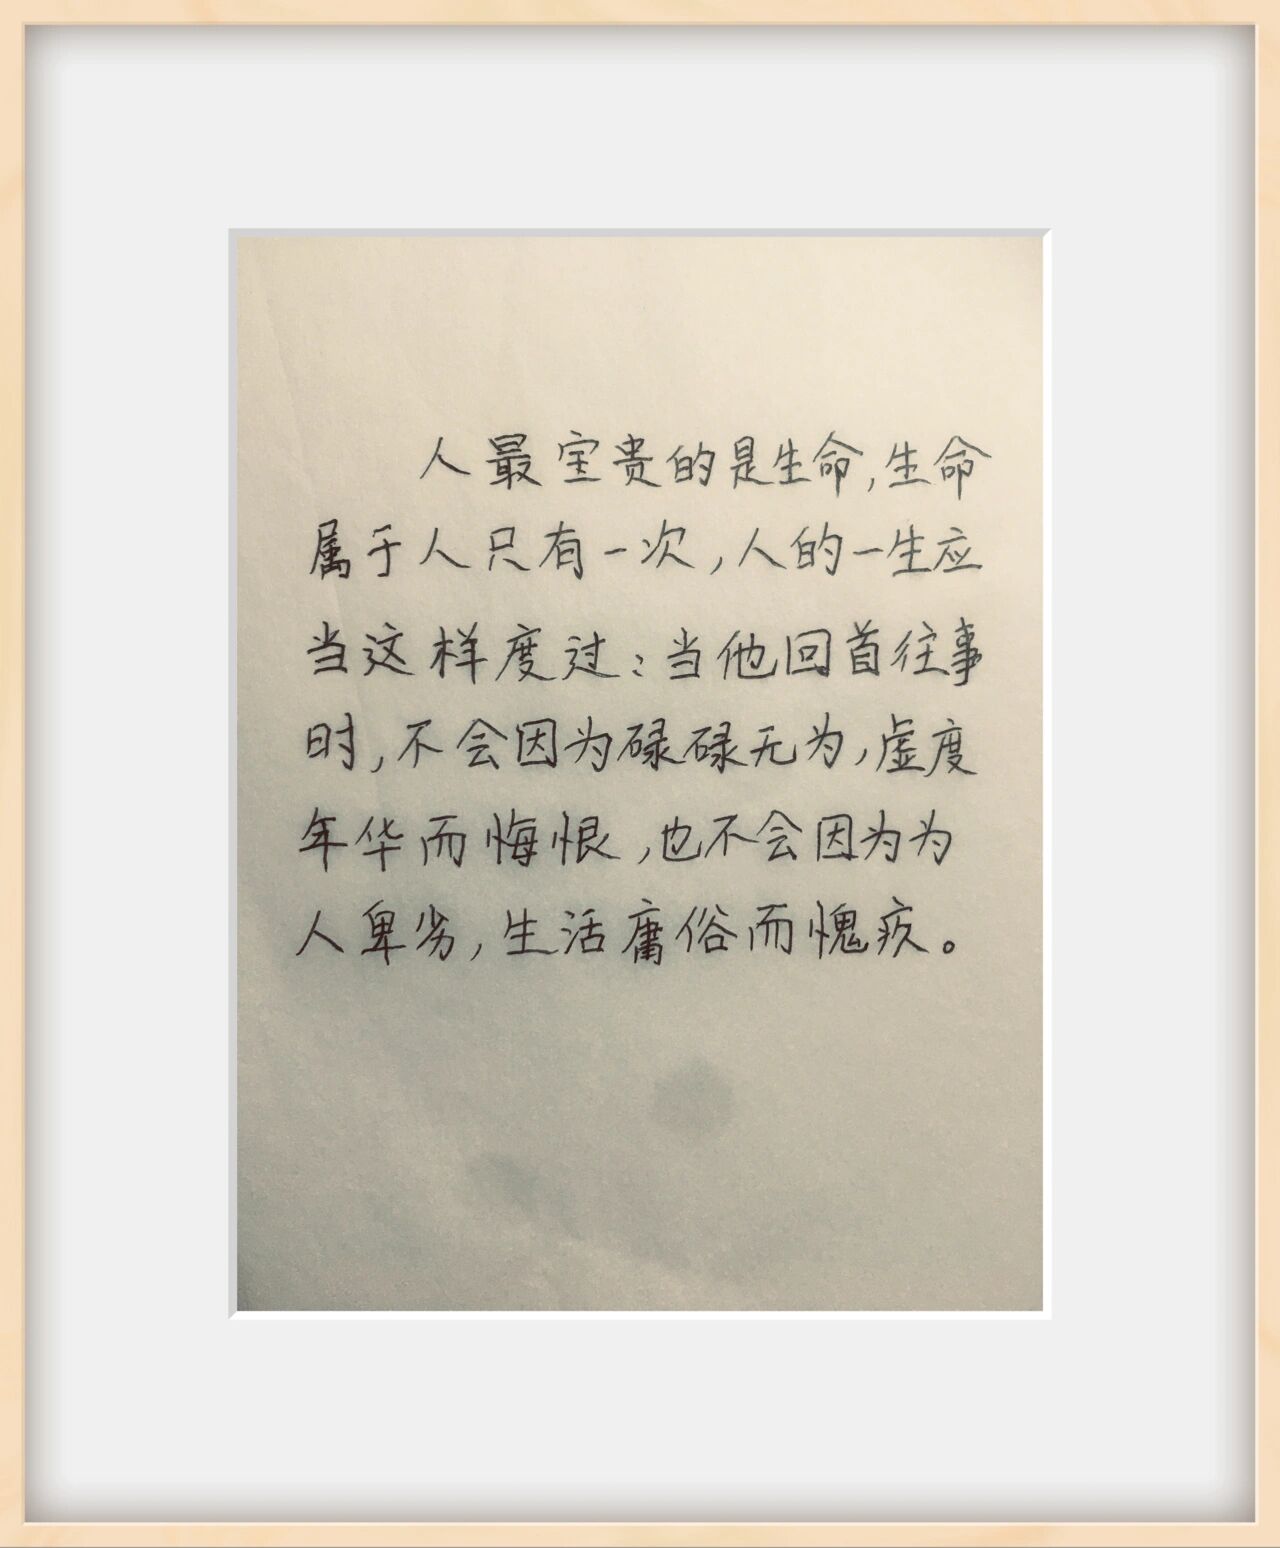 人最宝贵的是生命,生命
属于人只有一次,人的一生应
当这样度过:当他回首往事
时,不会因为碌碌无为,虚度
年华而悔恨,也不会因为为
人卑劣,生活庸俗而愧疚。